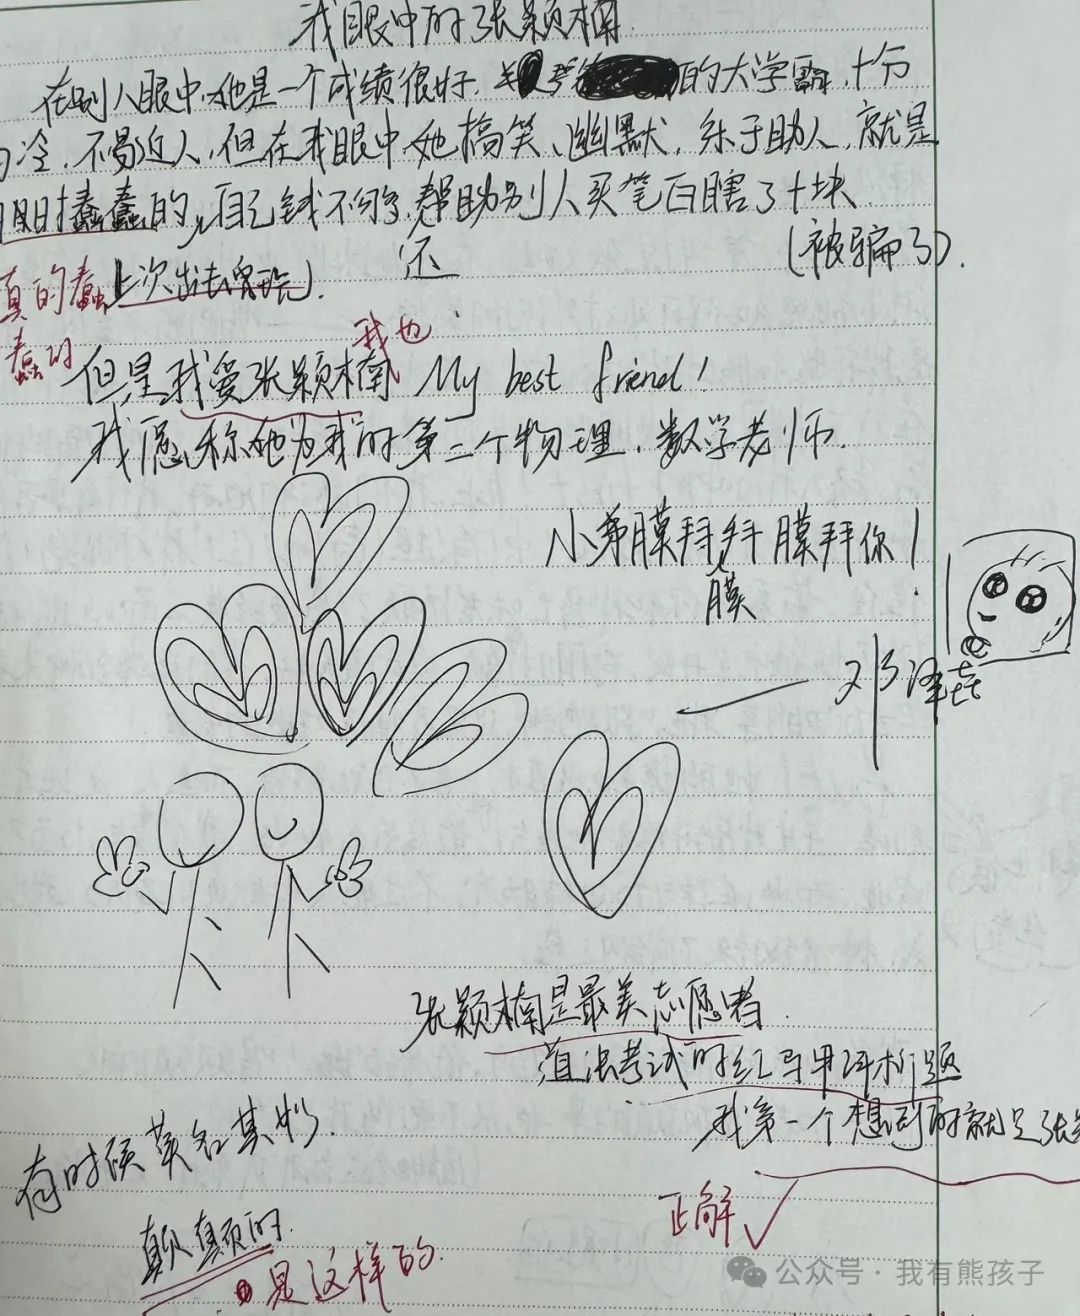 我眼中的张颖楠
在别人眼中,她是一个成绩很好, 的大学霸,十分
冷,不易近人,但在我眼中,她搞笑、幽默,乐于助人,就是
时蠢蠢的,自己钱不够,帮助别人买笔白瞎了十块
还
(被骗了).
真的蠢上次出去
蠢的
我也
但是我爱张颖楠 My best friend!
我愿称她为我的第二个物理,数学老师.
小弟膜拜拜膜拜你!
膜
—— 邓泽
张颖楠是最美志愿者.
道法考试的红马甲评析题
我第一个想到的就是张
有时候莫名其妙.
颠颠的.
正解✓
是这样的
公众号·我有熊孩子